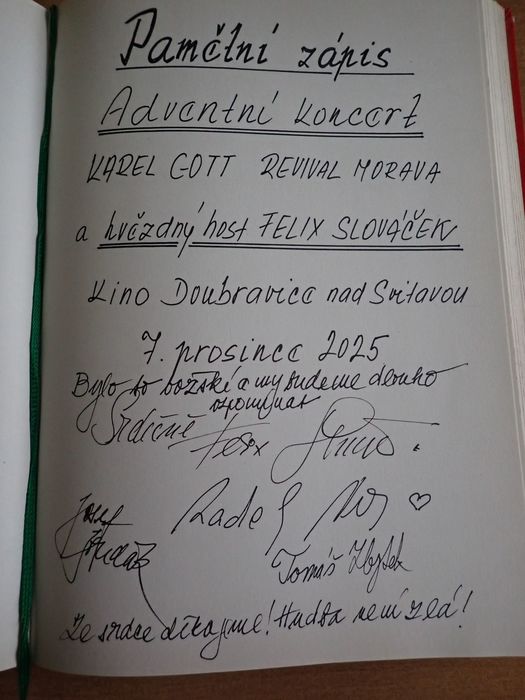 Pamětní zápis
Adventní koncert
KAREL GOTT REVIVAL MORAVA
a hvězdný host FELIX SLOVÁČEK
Kino Doubravice nad Svitavou
7. prosince 2025
Bylo to božské a my budeme dlouho
vzpomínat
Srdečně Felix
Josef
Radek
Tomáš
Ze srdce děkujeme! Hudba není zlá!